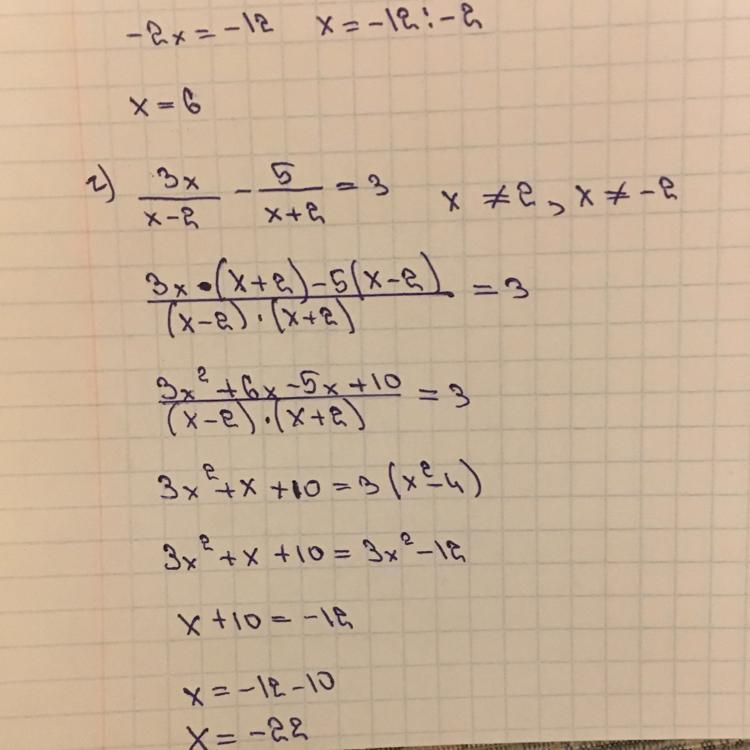 -2x = -12 x = -12 : -2
x = 6
г) 3x/(x-2) - 5/(x+2) = 3 x ≠ 2, x ≠ -2
(3x·(x+2)-5(x-2))/((x-2)·(x+2)) = 3
(3x²+6x-5x+10)/((x-2)·(x+2)) = 3
3x²+x+10 = 3(x²-4)
3x²+x+10 = 3x²-12
x+10 = -12
x = -12-10
x = -22